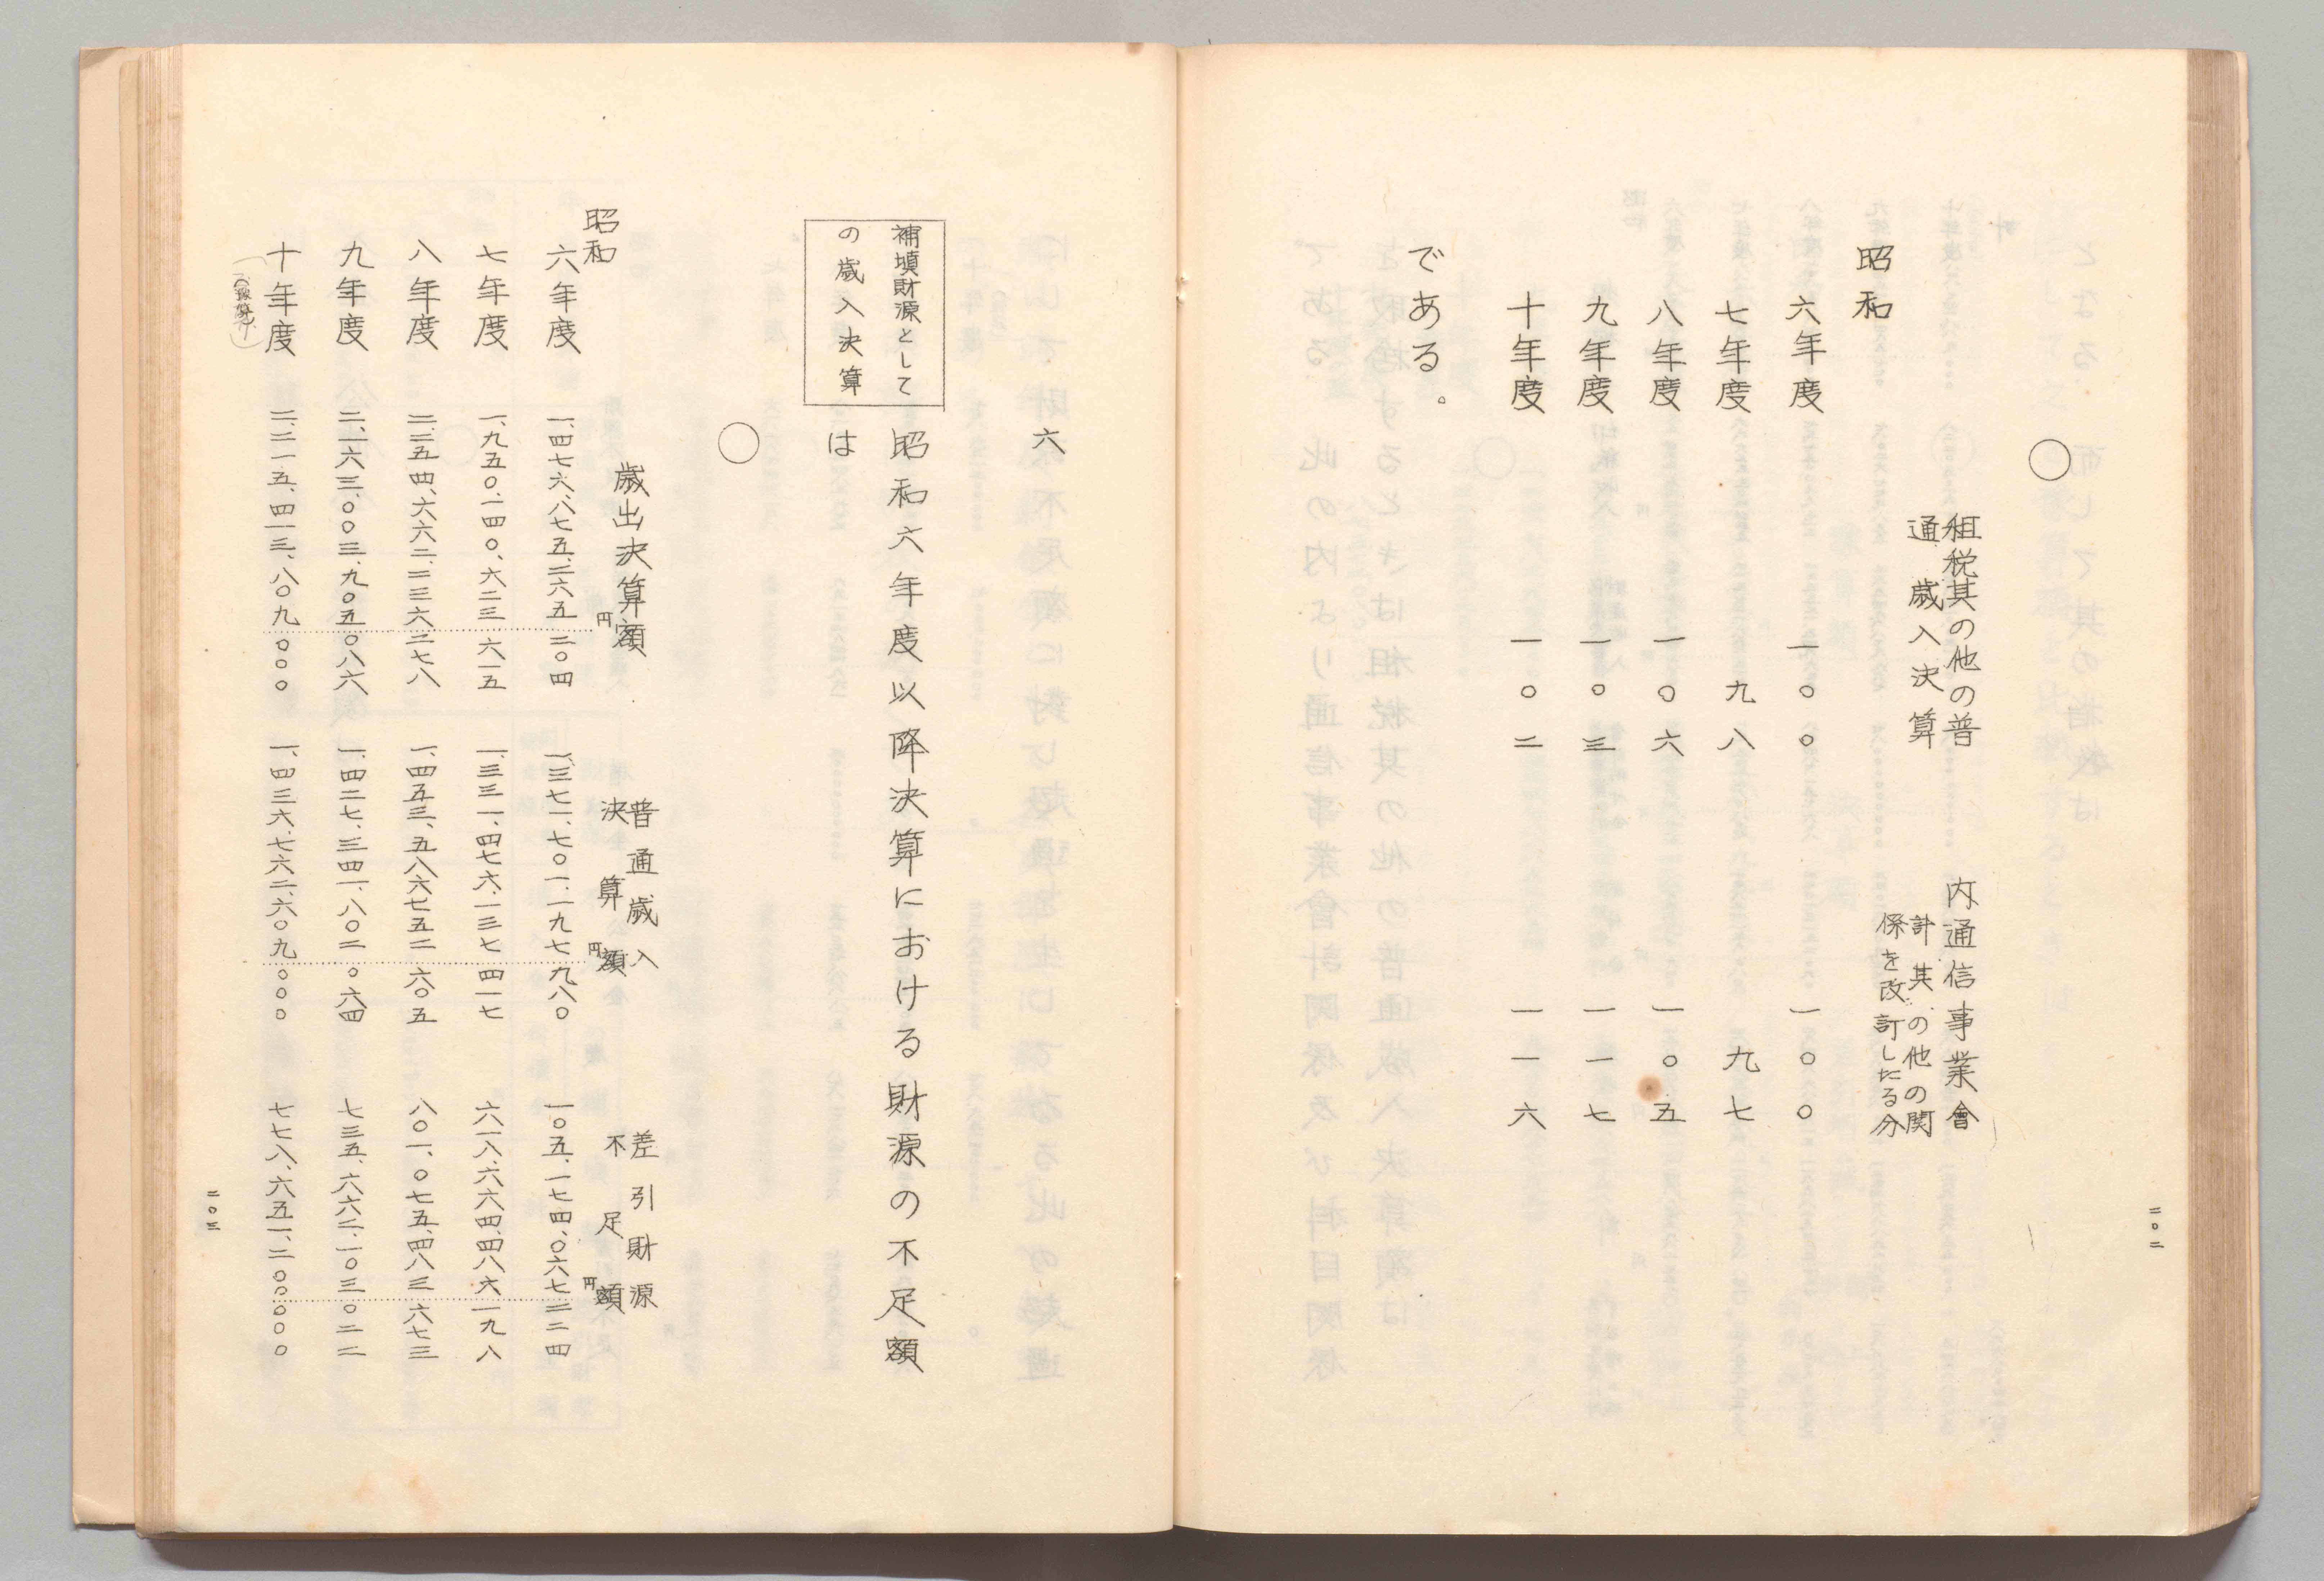 ○
租税其の他の普
通歳入決算
内通信事業會
計其の他の関
係を改訂したる分
昭和
六年度 一〇〇 一〇〇
七年度 九八 九七
八年度 一〇六 一〇五
九年度 一〇三 一一七
十年度 一〇二 一一六
である。
二〇二
六
補填財源として
の歳入決算
昭和六年度以降決算における財源の不足額
は
○
歳出決算額
円
普通歳入
決算額
円
差引財源
不足額
円
昭和
六年度 一、四七六、八七五、二六五 二〇四 一、三七一、七〇一、一九七 九八〇 一〇五、一七四、〇六七 二二四
七年度 一、九五〇、一四〇、六二三 六一五 一、三三一、四七六、一三七 四一七 六一八、六六四、四八六 一九八
八年度 二、二五四、六六二、二三六 二七八 一、四五三、五八六、七五二 六〇五 八〇一、〇七五、四八三 六七三
九年度 二、一六三、〇〇三、九〇五 〇八六 一、四二七、三四一、八〇二 〇六四 七三五、六六二、一〇三 〇二二
十年度 二、二一五、四一三、八〇九 〇〇〇 一、四三六、七六二、六〇九 〇〇〇 七七八、六五一、二〇〇 〇〇〇
二〇三